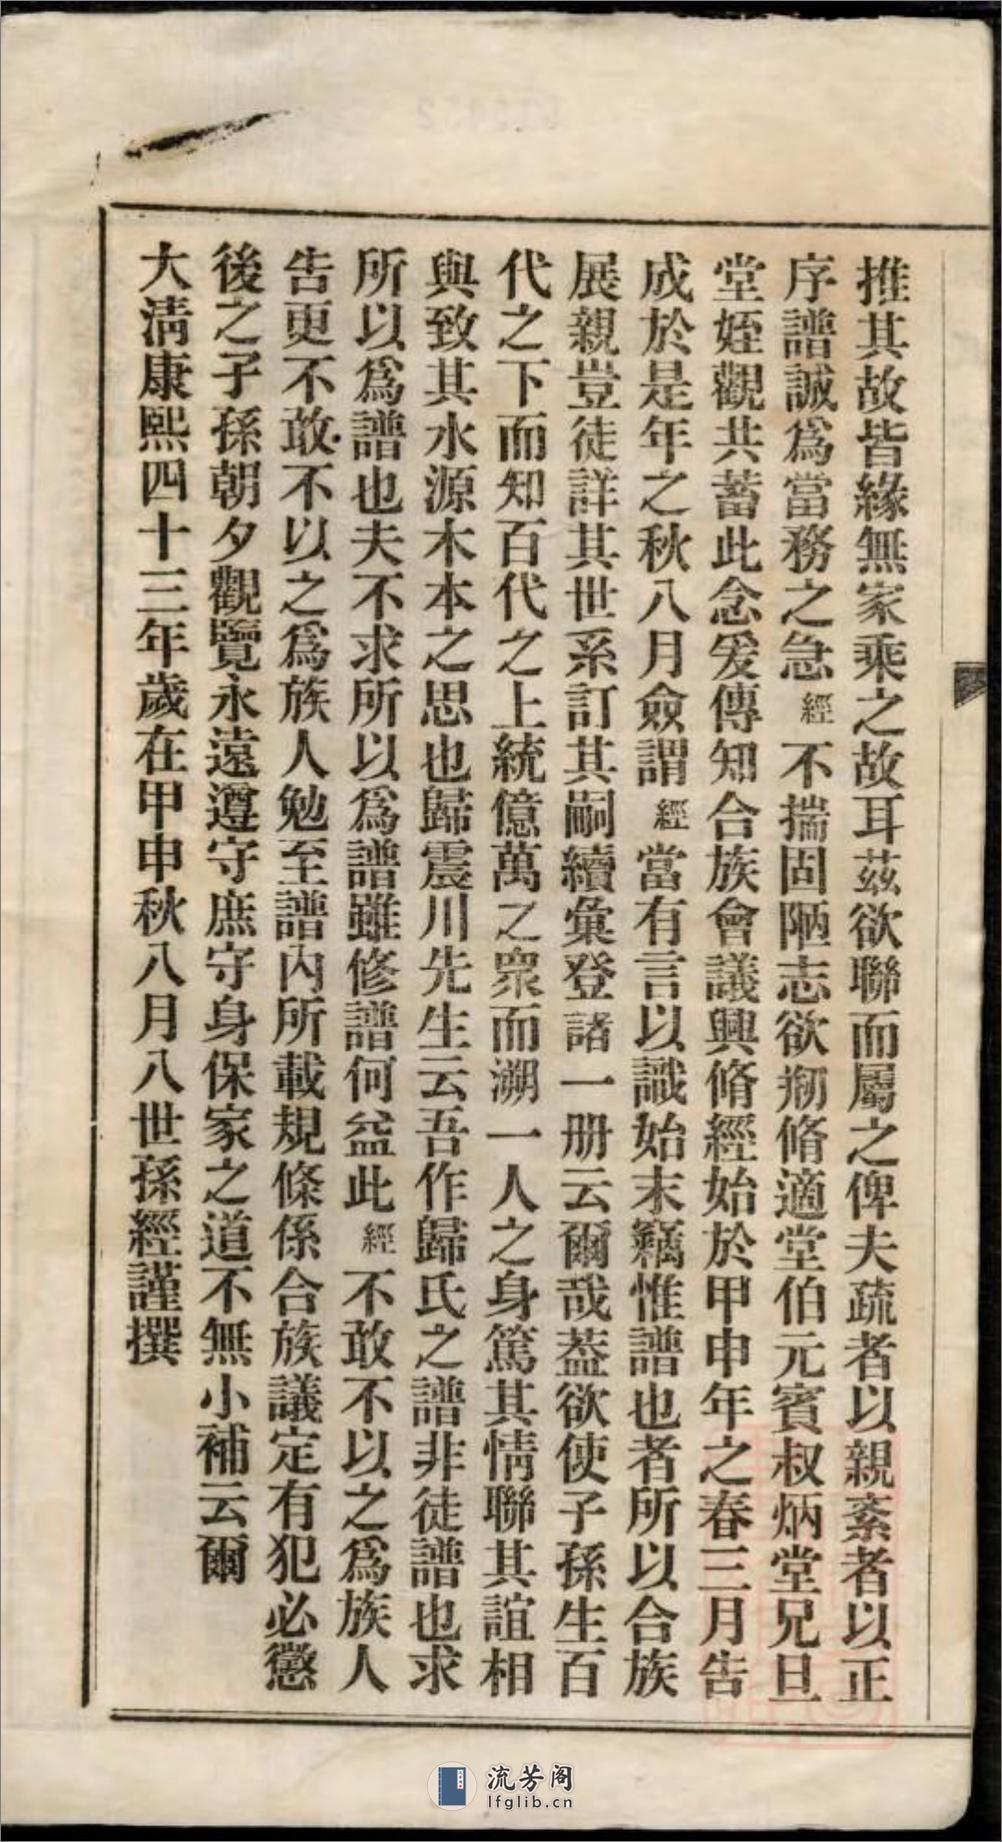 推其故皆緣無家乘之故耳茲欲聯而屬之俾夫疏者以親紊者以正
序譜誠爲當務之急經不揣固陋志欲剏脩適堂伯元賓叔炳堂兄旦
堂姪觀共蓄此念爰傳知合族會議興脩經始於甲申年之春三月告
成於是年之秋八月僉謂經當有言以識始末竊惟譜也者所以合族
展親豈徒詳其世系訂其嗣續彙登諸一册云爾哉葢欲使子孫生百
代之下而知百代之上統億萬之衆而溯一人之身篤其情聯其誼相
與致其水源木本之思也歸震川先生云吾作歸氏之譜非徒譜也求
所以爲譜也夫不求所以爲譜雖修譜何益此經不敢不以之爲族人
告更不敢不以之爲族人勉至譜内所載規條係合族議定有犯必懲
後之子孫朝夕觀覽永遠遵守庶守身保家之道不無小補云爾
大清康熙四十三年歲在甲申秋八月八世孫經謹撰
流芳阁
lfglib.cn